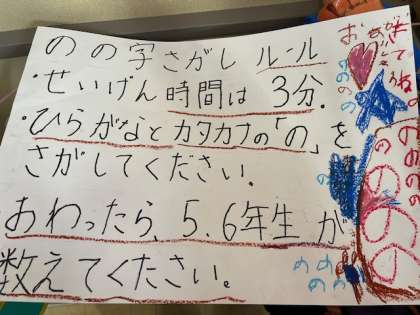 のの字さがし ルール
・せいげん時間は 3分.
・ひらがなとカタカナの「の」を
さがしてください.
あわったら、5、6年生が
数えてください。
の
の
の
の
の
の
の
の